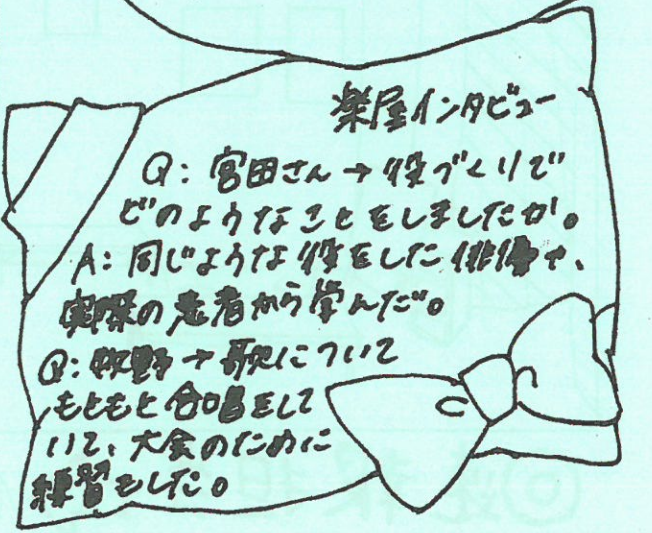 楽屋インタビュー
Q: 宮田さん→役づくりで
どのようなことをしましたか。
A: 同じような役をした俳優や、
実際の患者から学んだ。
Q: 牧野→歌について
もともと合唱をして
いて、大会のために
練習をした。